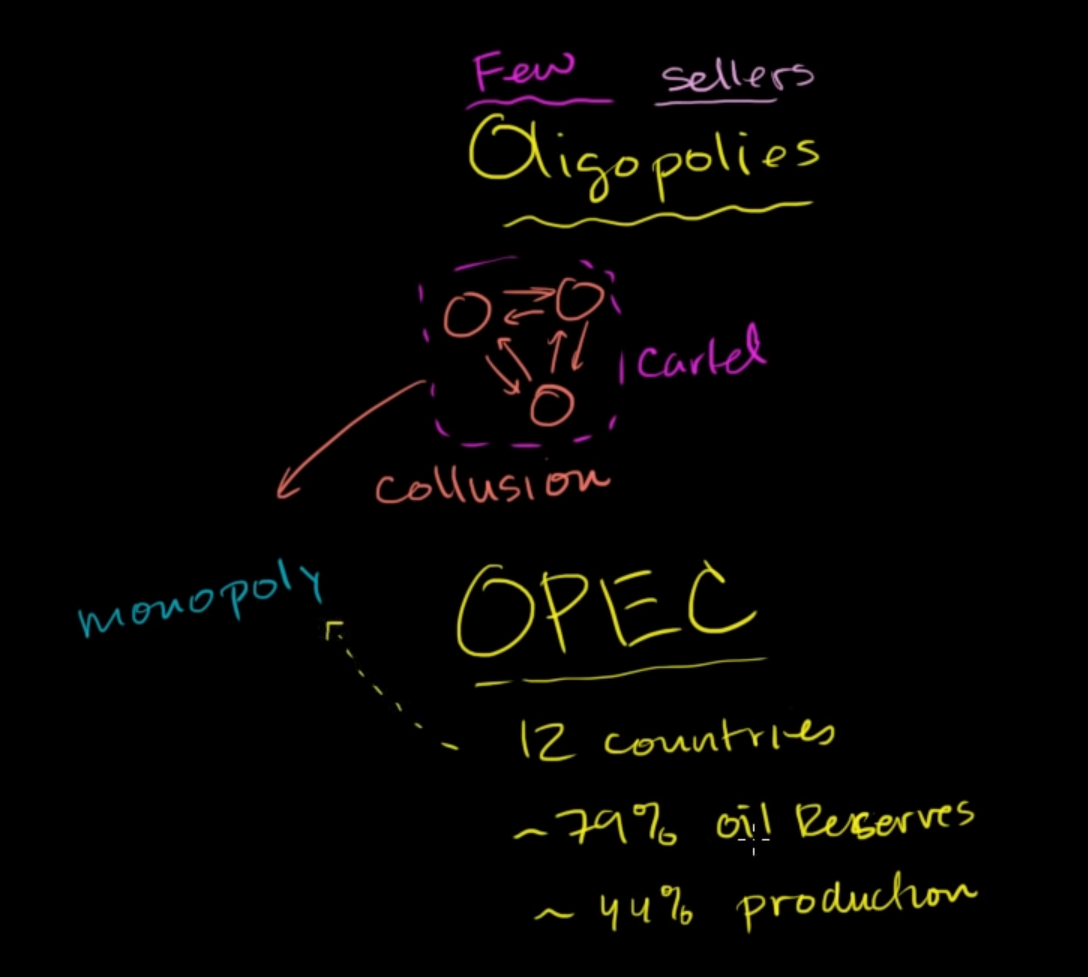 Few sellers
Oligopolies
Cartel
Collusion
monopoly
OPEC
12 countries
~79% oil Reserves
~ 44% production